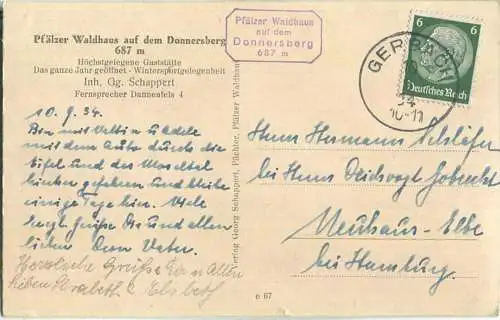 Pfälzer Waldhaus auf dem Donnersberg
687 m
Höchstgelegene Gaststätte
Das ganze Jahr geöffnet - Wintersportgelegenheit
Inh. Gg. Schappert
Fernsprecher Dannenfels 4
Pfälzer Waldhaus
auf dem
Donnersberg
687 m
GERBACH
34
10-11
6 6
Deutsches Reich
10. 9. 34.
Bin mit
mit dem Auto durch die
Eifel und das Moseltal
gefahren und bleibe
einige Tage hier. Viele
Grüße und allen
lieben Dein Vater.
Herzliche Grüße allen
Lieben Elsbeth
Verlag Georg Schappert, Pächter, Pfälzer Waldhaus
Herrn Hermann
bei Herrn
Neuhaus-Elbe
bei Hamburg.
e 67